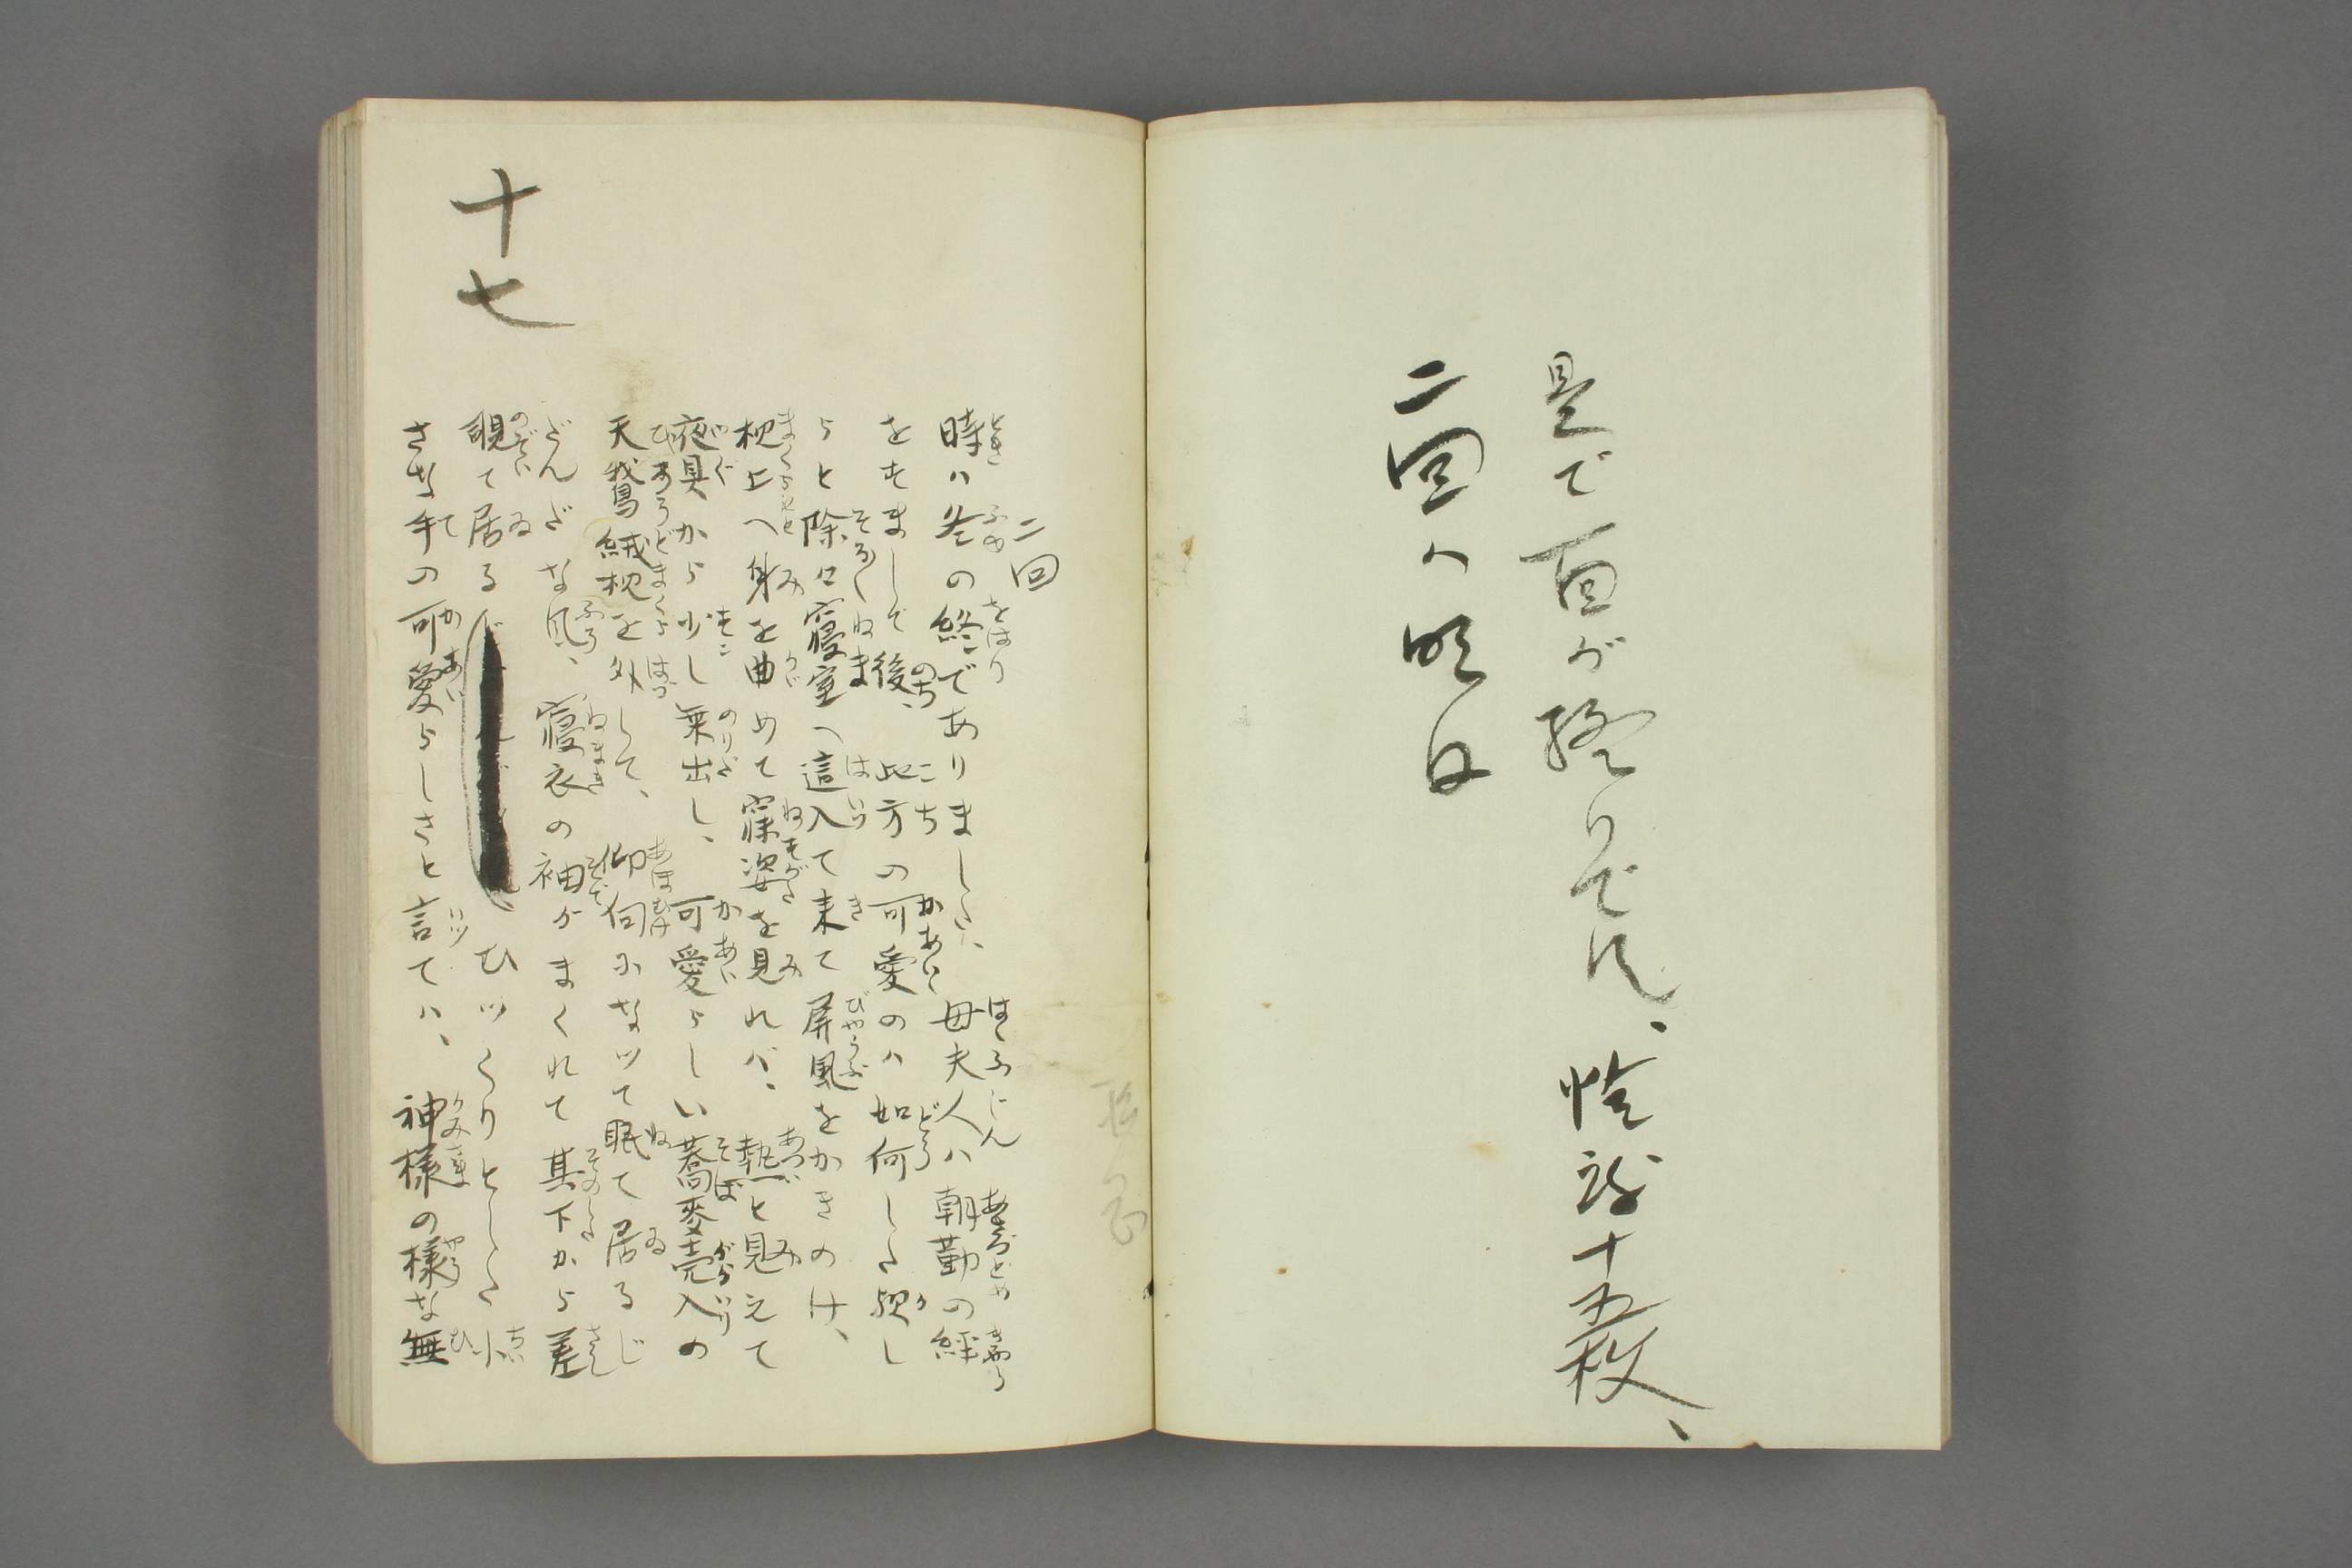 是で一百が終りでス、恰訳十五枚、
二回ハ明日
十七
二回
時ハ冬の終であり ました、母夫人ハ朝勤の絆
をすまして後、此方の可愛のハ如何した睨し
らと除々寝室へ這入て来て屏風をかきのけ、
枕上へ身を曲めて寐姿を見れバ、熱と見えて
夜具から少し乗出し、可愛らしい蕎麦売入の
天鵞絨枕を外して、仰向になツて眠て居るじ
だんだな風、寝衣の袖がまくれて其下から差
覗て居る ひツくりとした小
さな手の可愛らしさと言てハ、神様の様な無